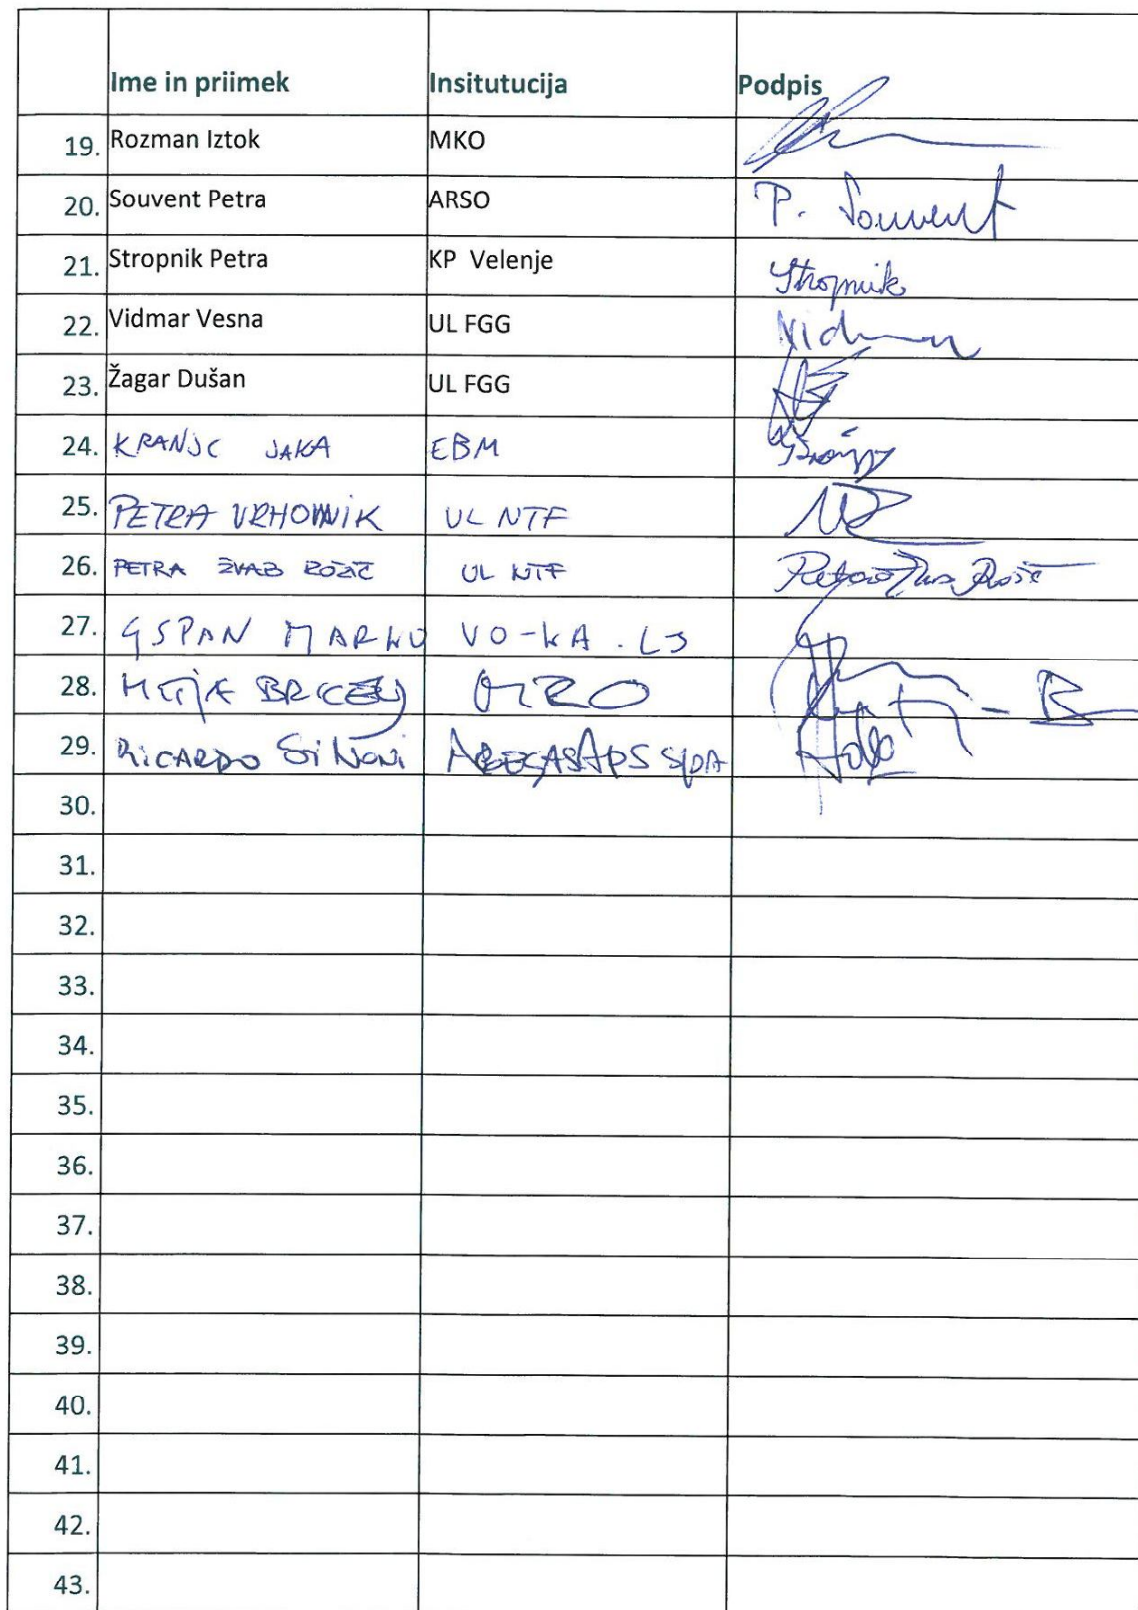 Ime in priimek Insitutucija Podpis
19. Rozman Iztok MKO
20. Souvent Petra ARSO P. Souvent
21. Stropnik Petra KP Velenje Stropnik
22. Vidmar Vesna UL FGG
23. Žagar Dušan UL FGG
24. KRANJC JAKA EBM
25. PETRA VRHOVNIK UL NTF
26. PETRA ŽVAB ROŽIČ UL NTF
27. GSPAN MARKO VO-KA. LJ
28. MITJA BRICELJ
29. RICARDO
30.
31.
32.
33.
34.
35.
36.
37.
38.
39.
40.
41.
42.
43.